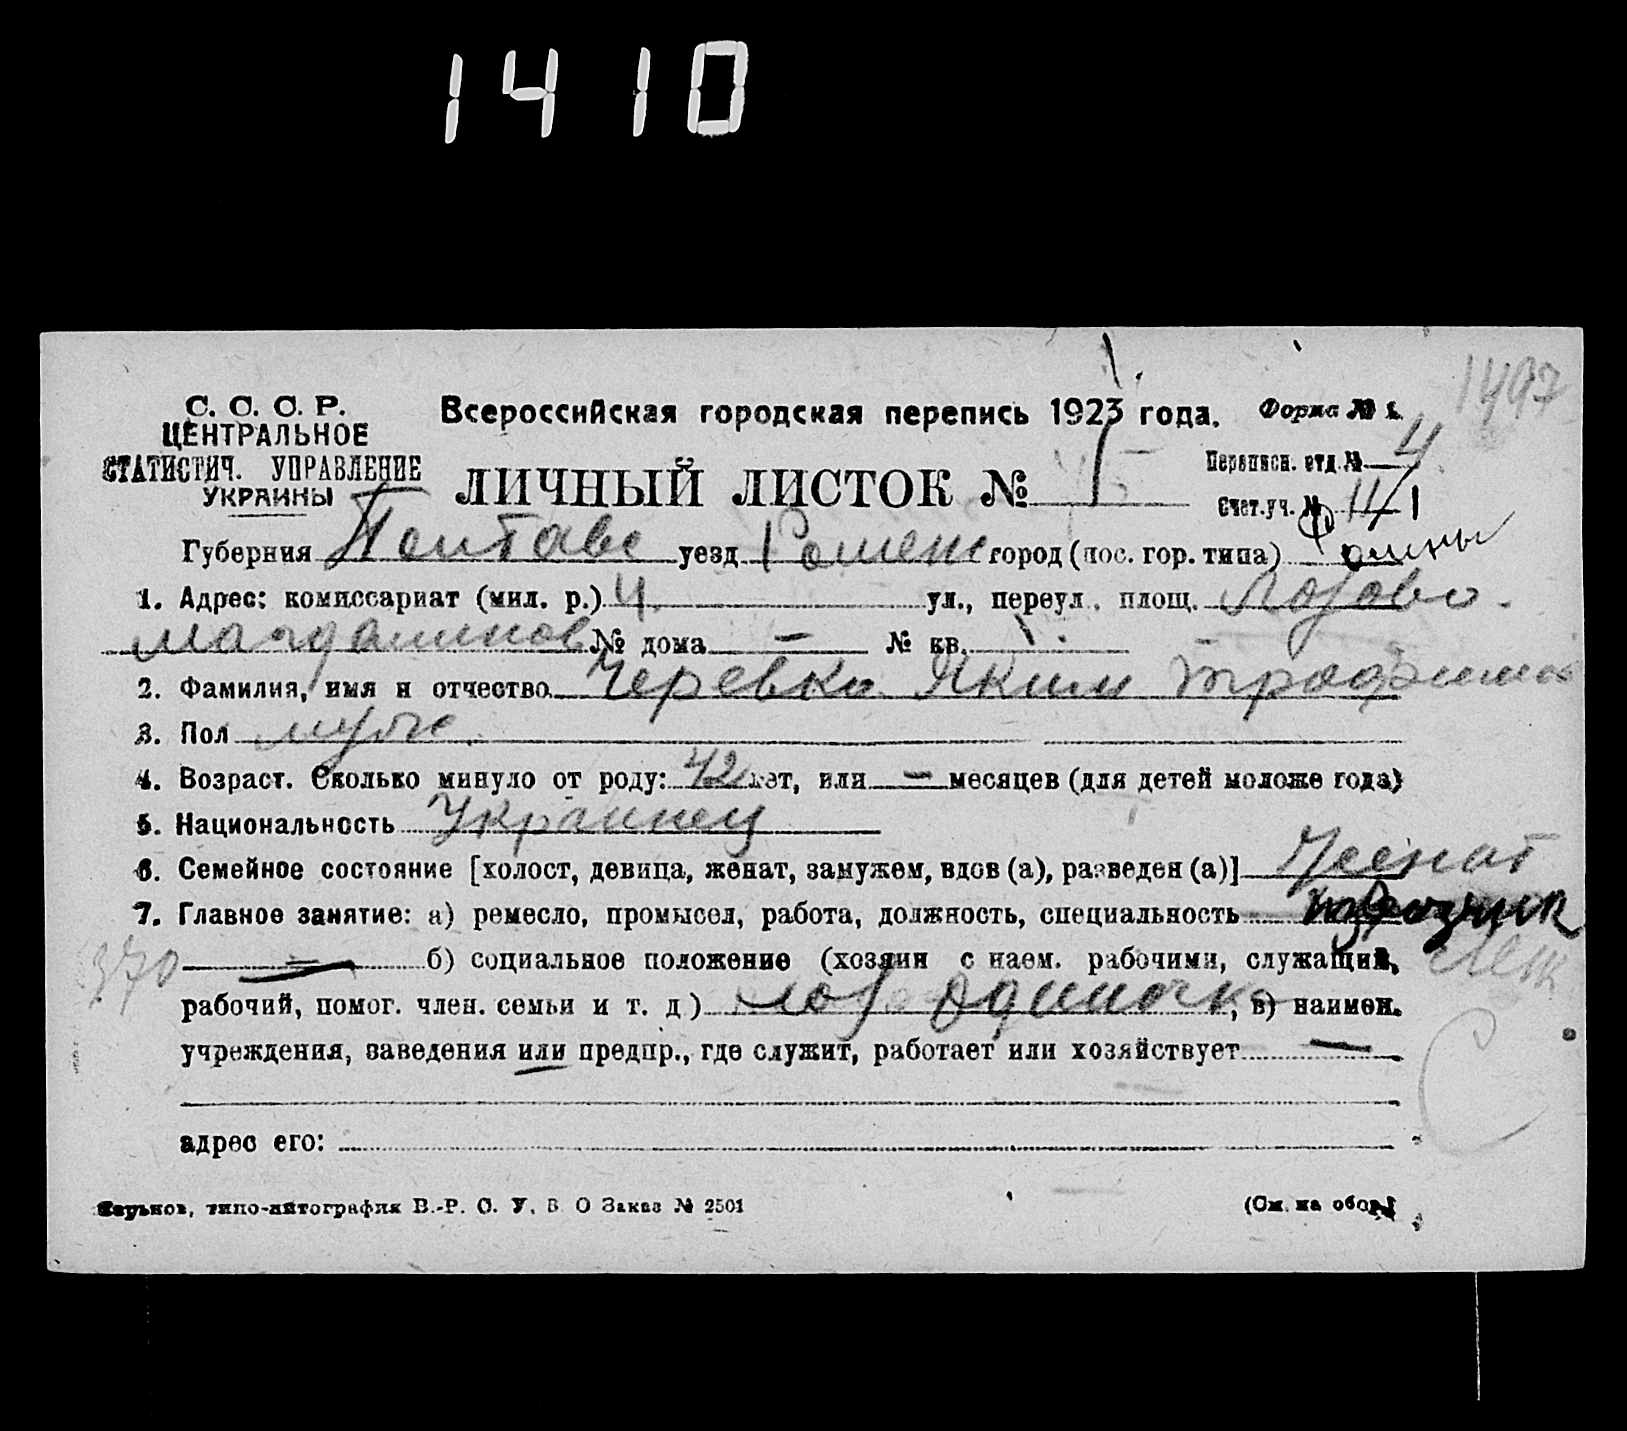 1410
1497
С. С. С. Р.
ЦЕНТРАЛЬНОЕ
СТАТИСТИЧ. УПРАВЛЕНИЕ
УКРАИНЫ
Всероссийская городская перепись 1923 года. Форма № 1.
ЛИЧНЫЙ ЛИСТОК № 1
Переписн. отд. № 4
Счет. уч. № 11/1
Губерния Полтавс уезд Роменс город (пос. гор. типа) Ромны
1. Адрес: комиссариат (мил. р.) 4. ул., переул., площ. Лозово-
№ дома — № кв.
2. Фамилия, имя и отчество Черевко Яким Трофимов
3. Пол муж.
4. Возраст. Сколько минуло от роду: 42 лет, или — месяцев (для детей моложе года)
5. Национальность Украинец
6. Семейное состояние [холост, девица, женат, замужем, вдов (а), разведен (а)] Женат
7. Главное занятие: а) ремесло, промысел, работа, должность, специальность
370 — б) социальное положение (хозяин с наем. рабочими, служащий,
рабочий, помог. член. семьи и т. д.) хоз одиночка, в) наимен.
учреждения, заведения или предпр., где служит, работает или хозяйствует —
адрес его:
Харьков, типо-литография В.-Р. С. У. В. О Заказ № 2501
(См. на обор.)